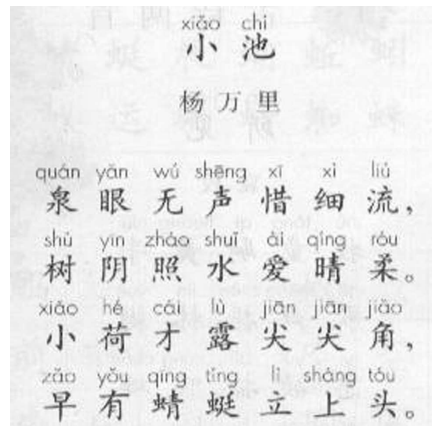 xiǎo chí
小池
杨万里
quán yǎn wú shēng xī xì liú
泉眼无声惜细流，
shù yīn zhào shuǐ ài qíng róu
树阴照水爱晴柔。
xiǎo hé cái lù jiān jiān jiǎo
小荷才露尖尖角，
zǎo yǒu qīng tíng lì shàng tóu
早有蜻蜓立上头。